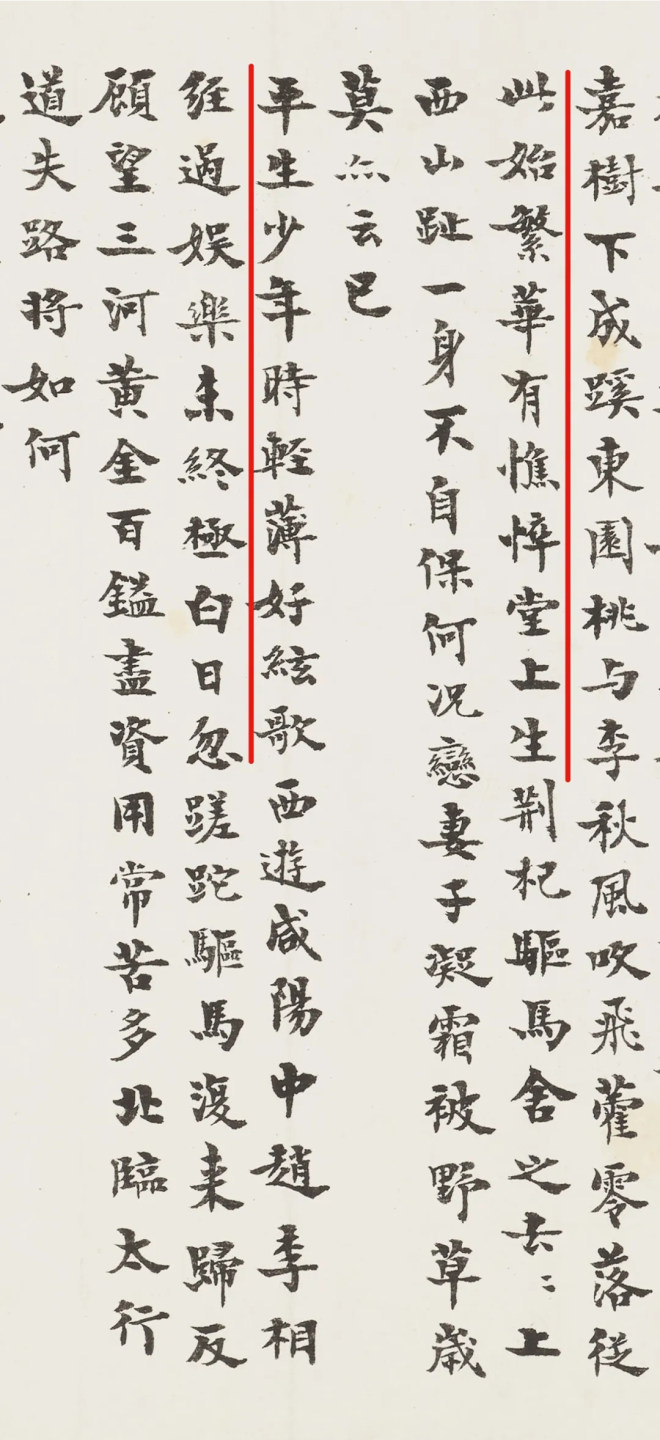 嘉樹下成蹊東園桃与李秋風吹飛藿零落從
此始繁華有憔悴堂上生荆杞驅馬舍之去〻上
西山趾一身不自保何况戀妻子凝霜被野草歳
莫亦云已
平生少年時輕薄好絃歌西遊咸陽中趙李相
經過娱樂未終極白日忽蹉跎驅馬復来歸反
顧望三河黄金百鎰盡資用常苦多北臨太行
道失路将如何